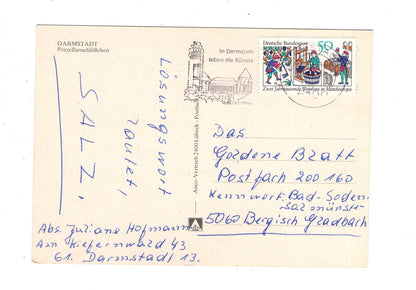 DARMSTADT
Porzellanschlößchen
In Darmstadt
leben die Künste
Deutsche Bundespost
50
Zwei Jahrtausende Weinbau in Mitteleuropa
Lösungswort
lautet,
SALZ.
Abs. Juliane Hofmann
Am Kiefernwald 43
61. Darmstadt 13.
Das
Goldene Blatt
Postfach 200 160
Kennwort: Bad-Soden
Salmünster
5060 Bergisch Gladbach